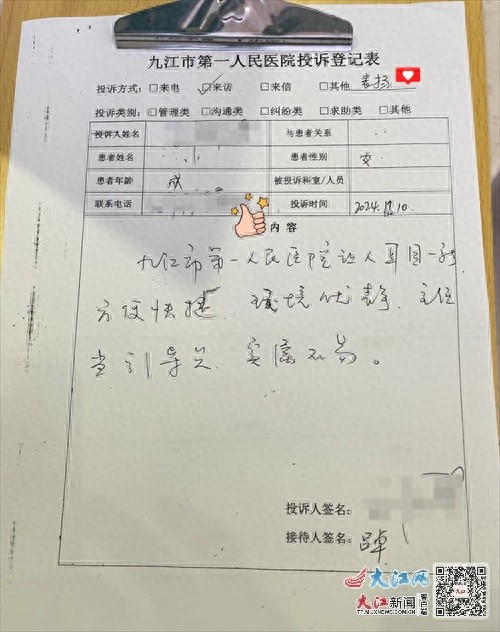 九江市第一人民医院投诉登记表
投诉方式: □来电 ☑来访 □来信 □其他 表扬
投诉类别: □管理类 □沟通类 □纠纷类 □求助类 □其他
投诉人姓名 与患者关系
患者姓名 患者性别 女
患者年龄 成 被投诉科室/人员
联系电话 投诉时间 2024.12.10
内容
九江市第一人民医院让人耳目一新
方便快捷 环境优静 主任
当引导员 实属不易。
投诉人签名:
接待人签名: 吕卓
大江网
大江新闻 客户端
TT.M.JXNEWS.COM.CN